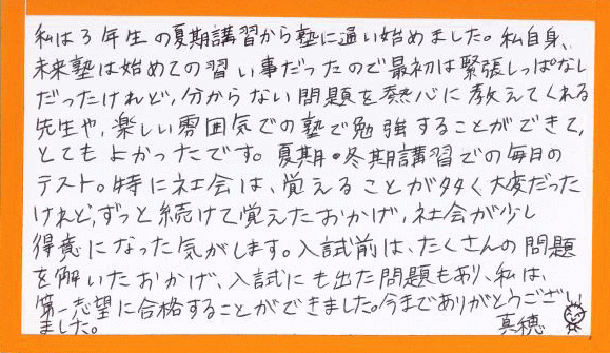 私は3年生の夏期講習から塾に通い始めました。私自身、
未来塾は始めての習い事だったので最初は緊張しっぱなし
だったけれど、分からない問題を熱心に教えてくれる
先生や、楽しい雰囲気での塾で勉強することができて、
とてもよかったです。夏期・冬期講習での毎日の
テスト。特に社会は、覚えることが多く大変だった
けれど、ずっと続けて覚えたおかげ、社会が少し
得意になった気がします。入試前は、たくさんの問題
を解いたおかげ、入試にも出た問題もあり、私は、
第一志望に合格することができました。今までありがとうござい
ました。
真穂